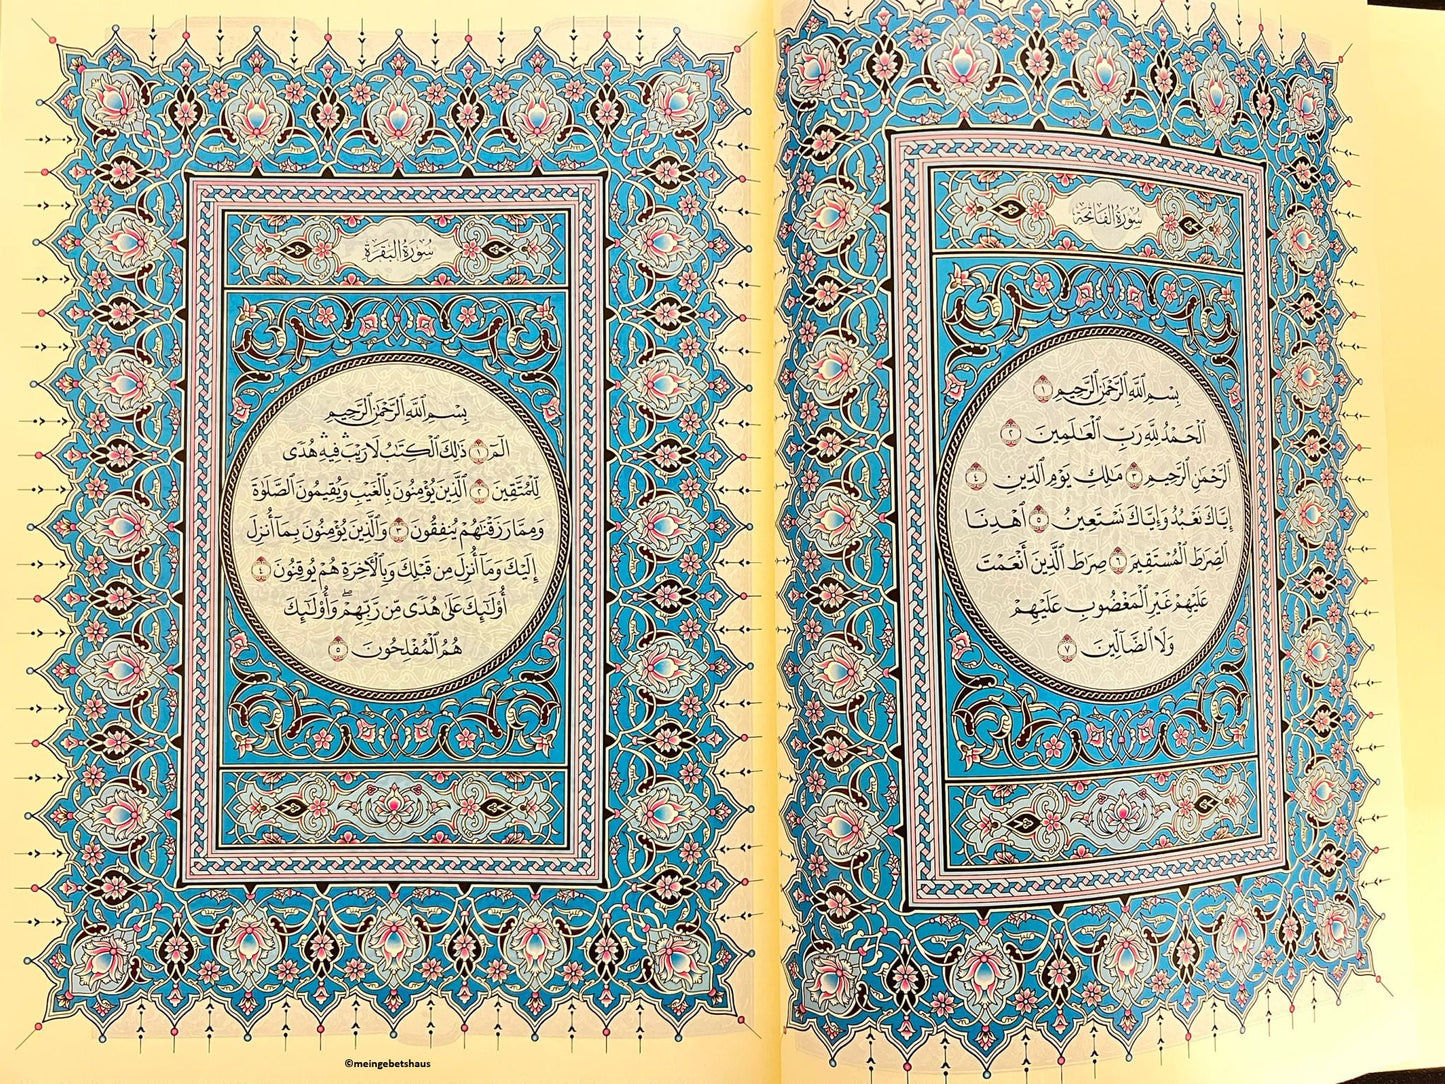 سُورَةُ الفَاتِحَةِ
بِسْمِ ٱللَّهِ ٱلرَّحْمَٰنِ ٱلرَّحِيمِ ١
ٱلْحَمْدُ لِلَّهِ رَبِّ ٱلْعَٰلَمِينَ ٢
ٱلرَّحْمَٰنِ ٱلرَّحِيمِ ٣ مَٰلِكِ يَوْمِ ٱلدِّينِ ٤
إِيَّاكَ نَعْبُدُ وَإِيَّاكَ نَسْتَعِينُ ٥ ٱهْدِنَا
ٱلصِّرَٰطَ ٱلْمُسْتَقِيمَ ٦ صِرَٰطَ ٱلَّذِينَ أَنْعَمْتَ
عَلَيْهِمْ غَيْرِ ٱلْمَغْضُوبِ عَلَيْهِمْ
وَلَا ٱلضَّآلِّينَ ٧
سُورَةُ البَقَرَةِ
بِسْمِ ٱللَّهِ ٱلرَّحْمَٰنِ ٱلرَّحِيمِ
الٓمٓ ١ ذَٰلِكَ ٱلْكِتَٰبُ لَا رَيْبَۛ فِيهِۛ هُدًى
لِّلْمُتَّقِينَ ٢ ٱلَّذِينَ يُؤْمِنُونَ بِٱلْغَيْبِ وَيُقِيمُونَ ٱلصَّلَوٰةَ
وَمِمَّا رَزَقْنَٰهُمْ يُنفِقُونَ ٣ وَٱلَّذِينَ يُؤْمِنُونَ بِمَآ أُنزِلَ
إِلَيْكَ وَمَآ أُنزِلَ مِن قَبْلِكَ وَبِٱلْءَاخِرَةِ هُمْ يُوقِنُونَ ٤
أُو۟لَٰٓئِكَ عَلَىٰ هُدًى مِّن رَّبِّهِمْۖ وَأُو۟لَٰٓئِكَ
هُمُ ٱلْمُفْلِحُونَ ٥
©meingebetshaus